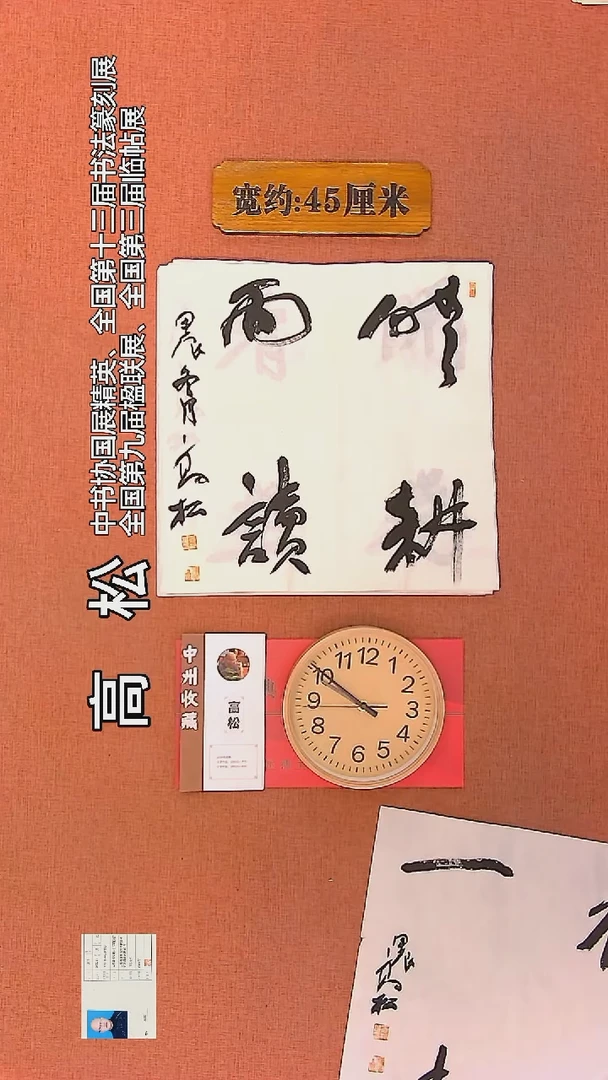 宽约:45厘米
高 松
中书协国展精英、全国第十三届书法篆刻展
全国第九届楹联展、全国第三届临帖展
晴耕
雨讀
甲辰冬月高松
高松
12
1
2
3
4
5
6
7
8
9
10
11
一
甲辰高松